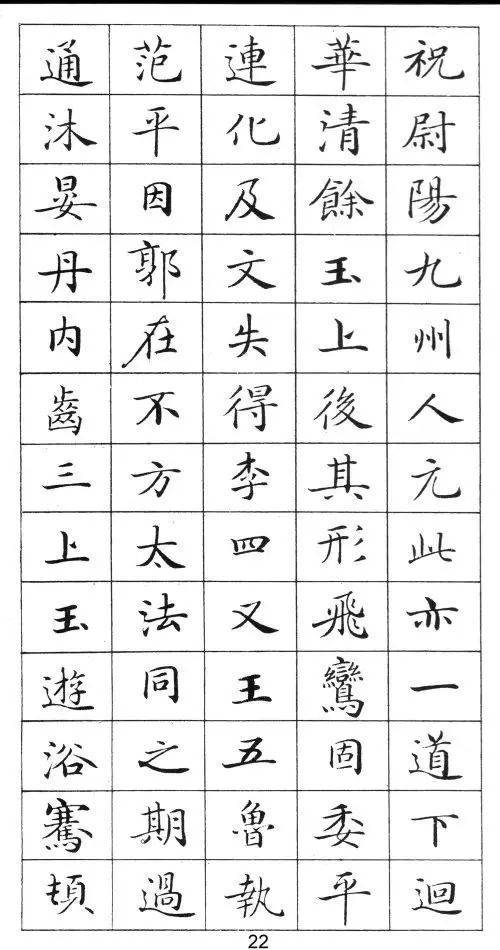 祝尉陽九州人元此亦一道下迴
華清餘玉上後其形飛鸞固委平
連化及文失得李四又王五魯執
范平因郭在不方太法同之期過
通沐晏丹内齒三上玉遊浴騫頓
22